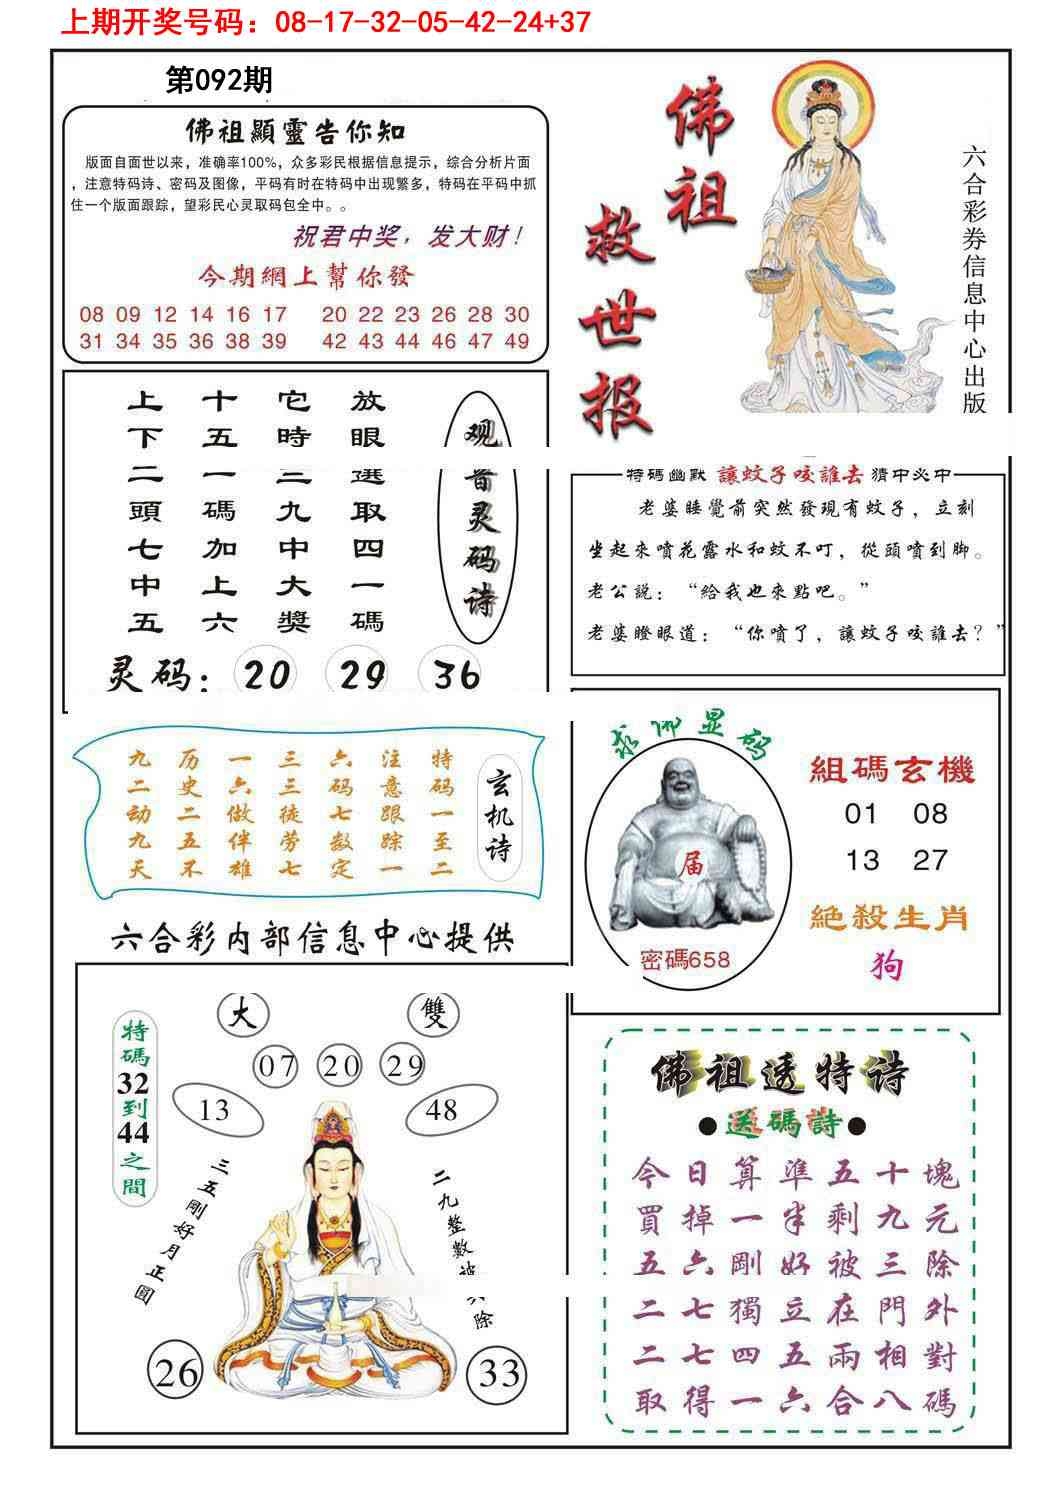 上期开奖号码：08-17-32-05-42-24+37
第092期
佛祖顯靈告你知
版面自面世以来，准确率100%，众多彩民根据信息提示，综合分析片面
，注意特码诗、密码及图像，平码有时在特码中出现繁多，特码在平码中抓
住一个版面跟踪，望彩民心灵取码包全中。。
祝君中奖，发大财！
今期網上幫你發
08 09 12 14 16 17 20 22 23 26 28 30
31 34 35 36 38 39 42 43 44 46 47 49
佛祖救世报
六合彩券信息中心出版
观音灵码诗
放眼選取四一碼
它時三九中大獎
十五一碼加上六
上下二頭七中五
灵码：20 29 36
特碼幽默 讓蚊子咬誰去 猜中必中
老婆睡覺前突然發現有蚊子，立刻
坐起來噴花露水和蚊不叮，從頭噴到脚。
老公説：“給我也來點吧。”
老婆瞪眼道：“你噴了，讓蚊子咬誰去？”
玄机诗
特码一至二
注意跟踪一
六码七数定
三三徒劳七
一六做伴雄
历史二五不
九二动九天
求佛显码
届
密碼658
組碼玄機
01 08
13 27
絕殺生肖
狗
六合彩内部信息中心提供
大 雙
07 20 29
13 48
特碼32到44之間
三五剛好月正圓
二九整數被
除
26 33
佛祖透特诗
●送碼詩●
今日算準五十塊
買掉一半剩九元
五六剛好被三除
二七獨立在門外
二七四五兩相對
取得一六合八碼